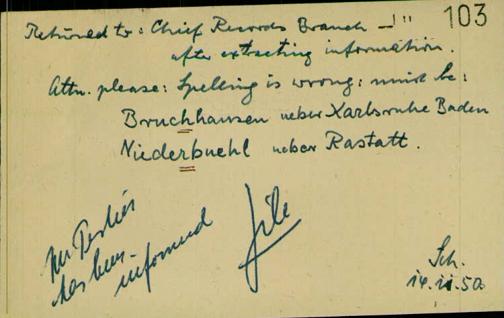 103
Returned to: Chief Records Branch — ! "
after extracting information.
Attn. please: Spelling is wrong: must be:
Bruchhausen ueber Karlsruhe Baden
Niederbuehl ueber Rastatt.
Mr
has been
informed
file
Sch.
14.11.50